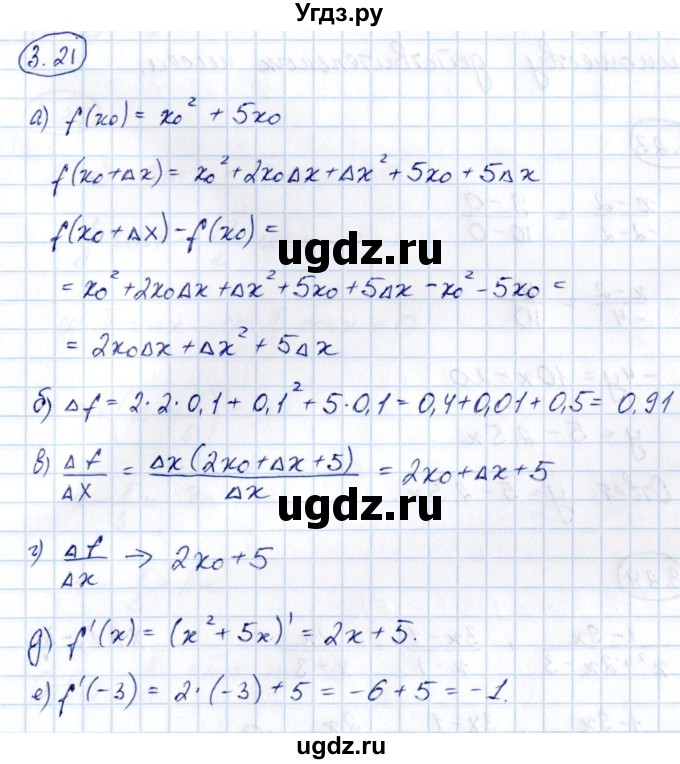 Угдз.ру
3.21
а) f(x₀) = x₀² + 5x₀
f(x₀+Δx) = x₀² + 2x₀Δx + Δx² + 5x₀ + 5Δx
f(x₀+Δx) - f(x₀) =
ugdz.ru
= x₀² + 2x₀Δx + Δx² + 5x₀ + 5Δx - x₀² - 5x₀ =
= 2x₀Δx + Δx² + 5Δx
б) Δf = 2·2·0,1 + 0,1² + 5·0,1 = 0,4 + 0,01 + 0,5 = 0,91
в) Δf/Δx = Δx(2x₀+Δx+5)/Δx = 2x₀ + Δx + 5
ugdz.ru
г) Δf/Δx → 2x₀ + 5
д) f'(x) = (x² + 5x)' = 2x + 5.
е) f'(-3) = 2·(-3) + 5 = -6 + 5 = -1.
ugdz.ru
ugdz.ru